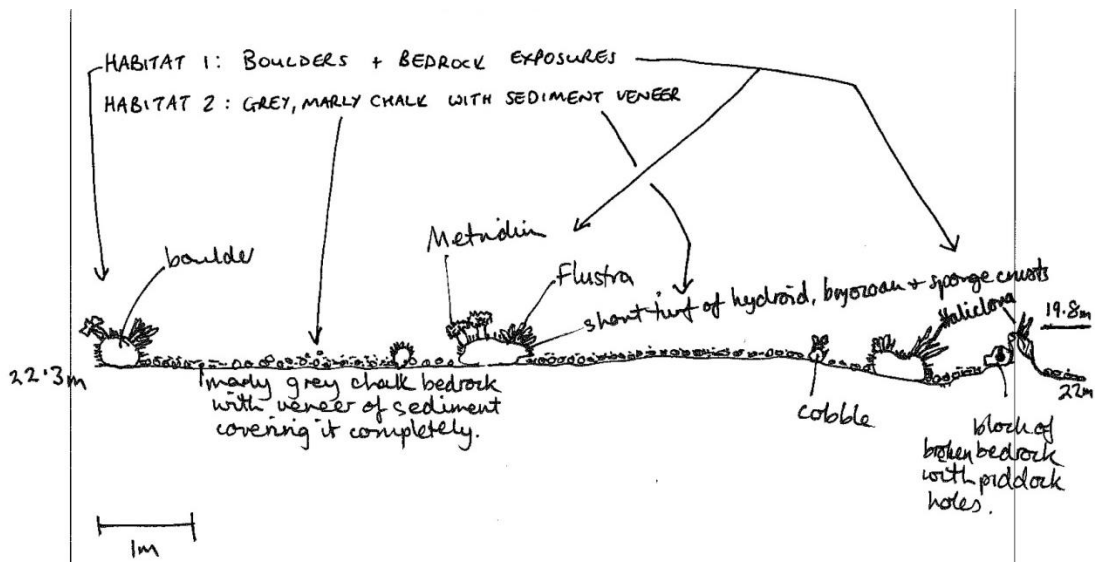 HABITAT 1: BOULDERS + BEDROCK EXPOSURES
HABITAT 2: GREY, MARLY CHALK WITH SEDIMENT VENEER
Metridium
boulder
Flustra
short turf of hydroid, bryozoan + sponge crusts
Haliclona
19.8m
22.3m
marly grey chalk bedrock
with veneer of sediment
covering it completely.
22m
cobble
block of
broken bedrock
with piddock
holes.
1m